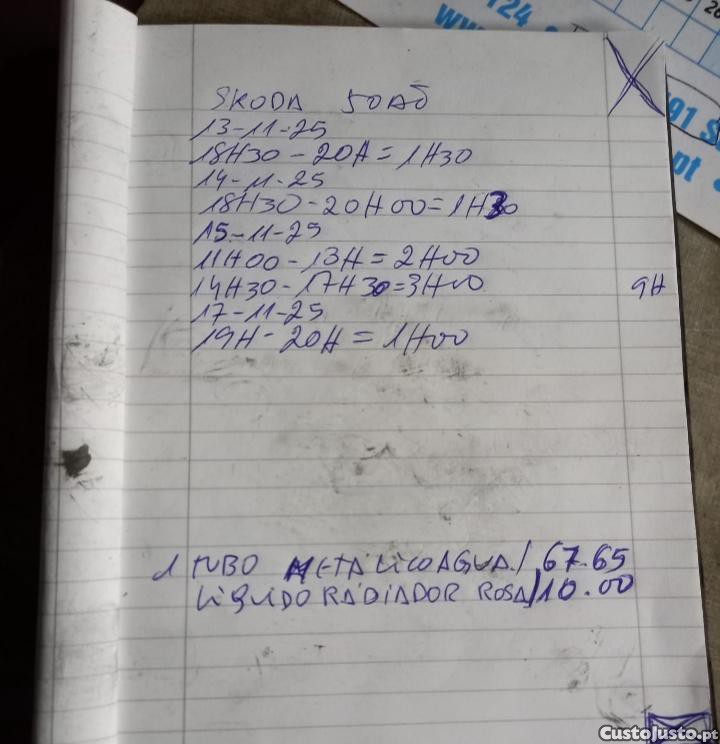 SKODA JOÃO
13-11-25
18H30 - 20H = 1H30
14-11-25
18H30 - 20H00 = 1H30
15-11-25
11H00 - 13H = 2H00
14H30 - 17H30 = 3H00 9H
17-11-25
19H - 20H = 1H00
1 TUBO METALICO AGUA / 67.65
LIQUIDO RADIADOR ROSA / 10.00
124
www
91
pt
CustoJusto.pt